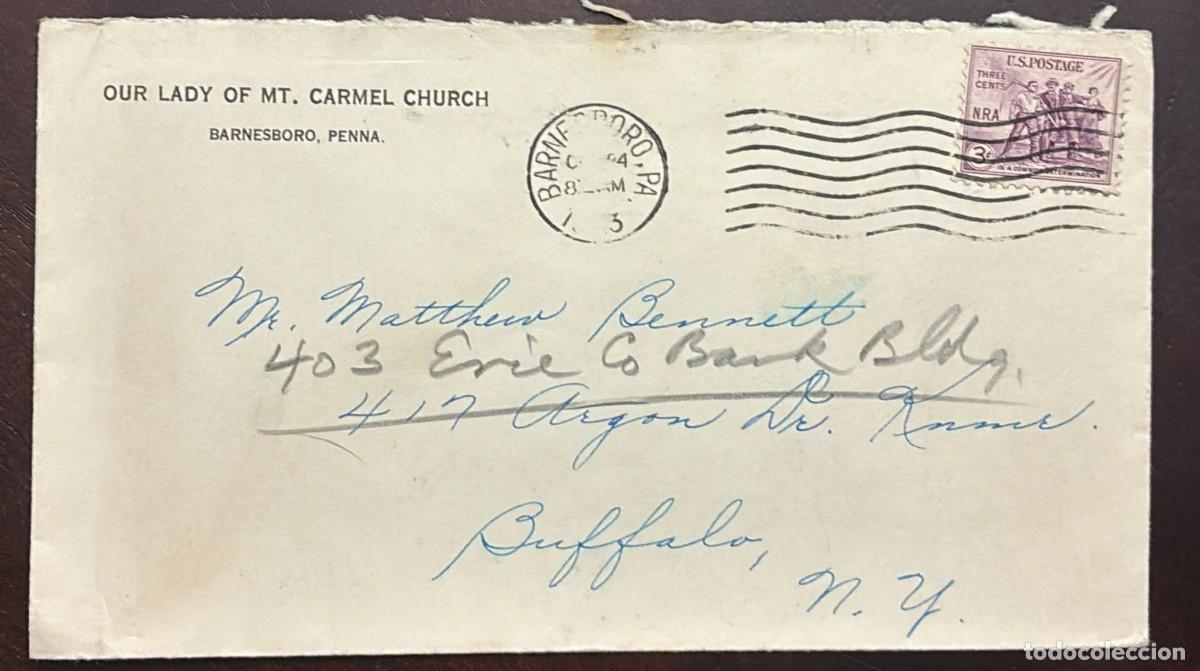 OUR LADY OF MT. CARMEL CHURCH
BARNESBORO, PENNA.
BARNESBORO, PA
U.S. POSTAGE
THREE CENTS
N.R.A.
3¢
IN A COMMON DETERMINATION
Mr. Matthew Bennett
403 Erie Co Bank Bldg.
417 Argon Dr. Knmr.
Buffalo,
N. Y.
todocoleccion